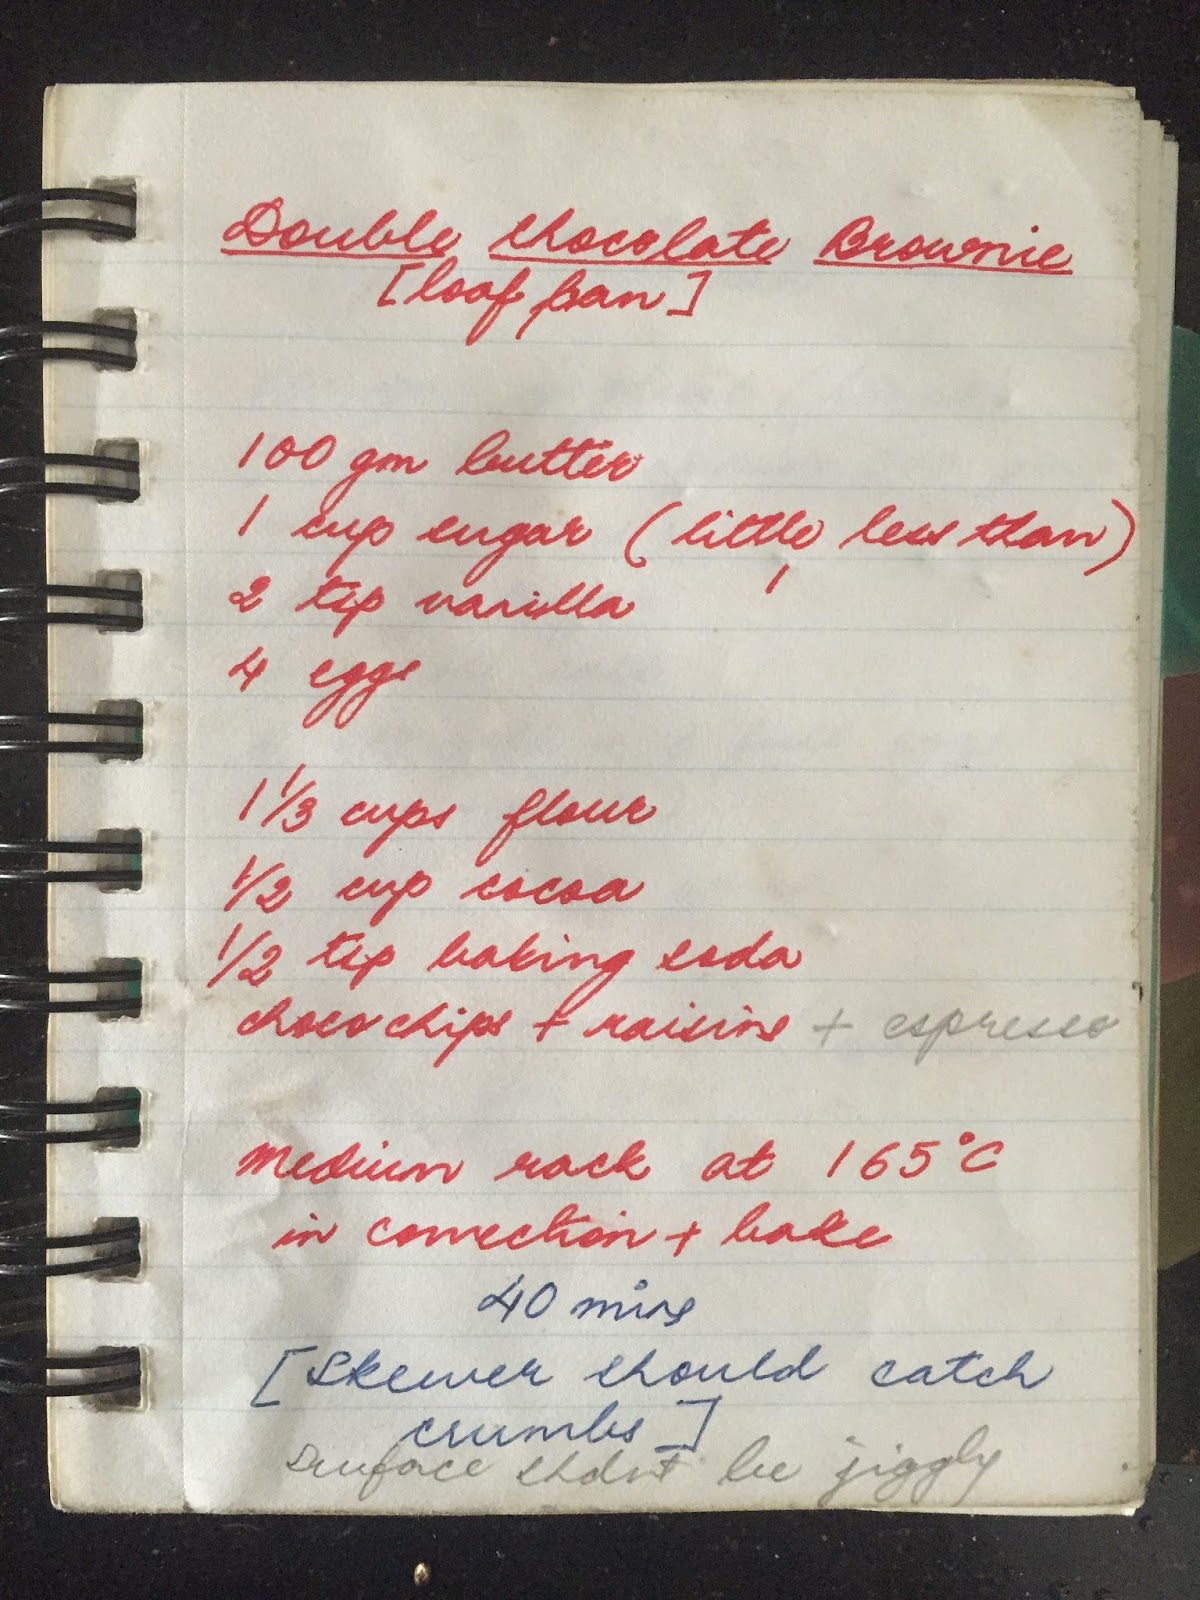 Double chocolate Brownie
[loaf pan]
100 gm butter
1 cup sugar (little less than)
2 tsp vanilla
4 eggs
1 1/3 cups flour
1/2 cup cocoa
1/2 tsp baking soda
choco chips + raisins + espresso
Medium rack at 165°C
in convection + bake
40 mins
[Skewer should catch
crumbs]
Surface shdnt be jiggly